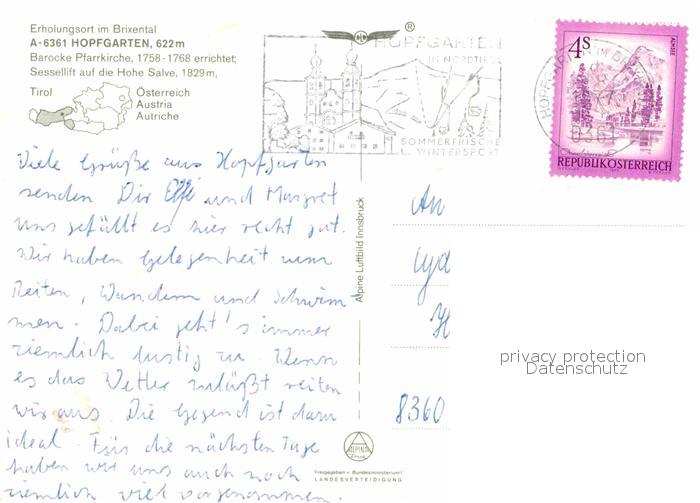 Erholungsort im Brixental
A-6361 HOPFGARTEN, 622m
Barocke Pfarrkirche, 1758-1768 errichtet;
Sessellift auf die Hohe Salve, 1829m,
Tirol
Österreich
Austria
Autriche
®
HOPFGARTEN
IN NORDTIROL
SOMMERFRISCHE
U. WINTERSPORT
6361
4S
ALMSEE
REPUBLIK ÖSTERREICH
Viele Grüße aus Hopfgarten
senden Dir Effi und Margret
uns gefällt es hier recht gut.
Wir haben Gelegenheit zum
Reiten, Wandern und Schwim-
men. Dabei geht's immer
ziemlich lustig zu. Wenn
es das Wetter zuläßt reiten
wir aus. Die Gegend ist dazu
ideal. Für die nächsten Tage
haben wir uns auch noch
ziemlich viel vorgenommen.
Alpine Luftbild Innsbruck
An
8360
privacy protection
Datenschutz
ALPINE
Freigegeben v. Bundesministerium f.
LANDESVERTEIDIGUNG